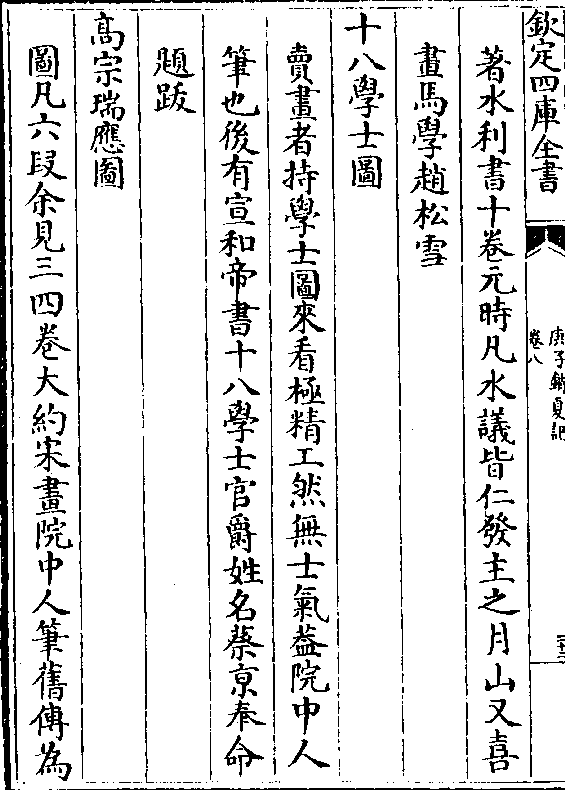 欽定四庫全書
庚子銷夏記
卷八
著水利書十卷元時凡水議皆仁發主之月山又喜
畫馬學趙松雪
十八學士圖
賣畫者持學士圖來看極精工然無士氣葢院中人
筆也後有宣和帝書十八學士官爵姓名蔡京奉命
題跋
髙宗瑞應圖
圖凡六段余見三四卷大約宋畫院中人筆舊傳為